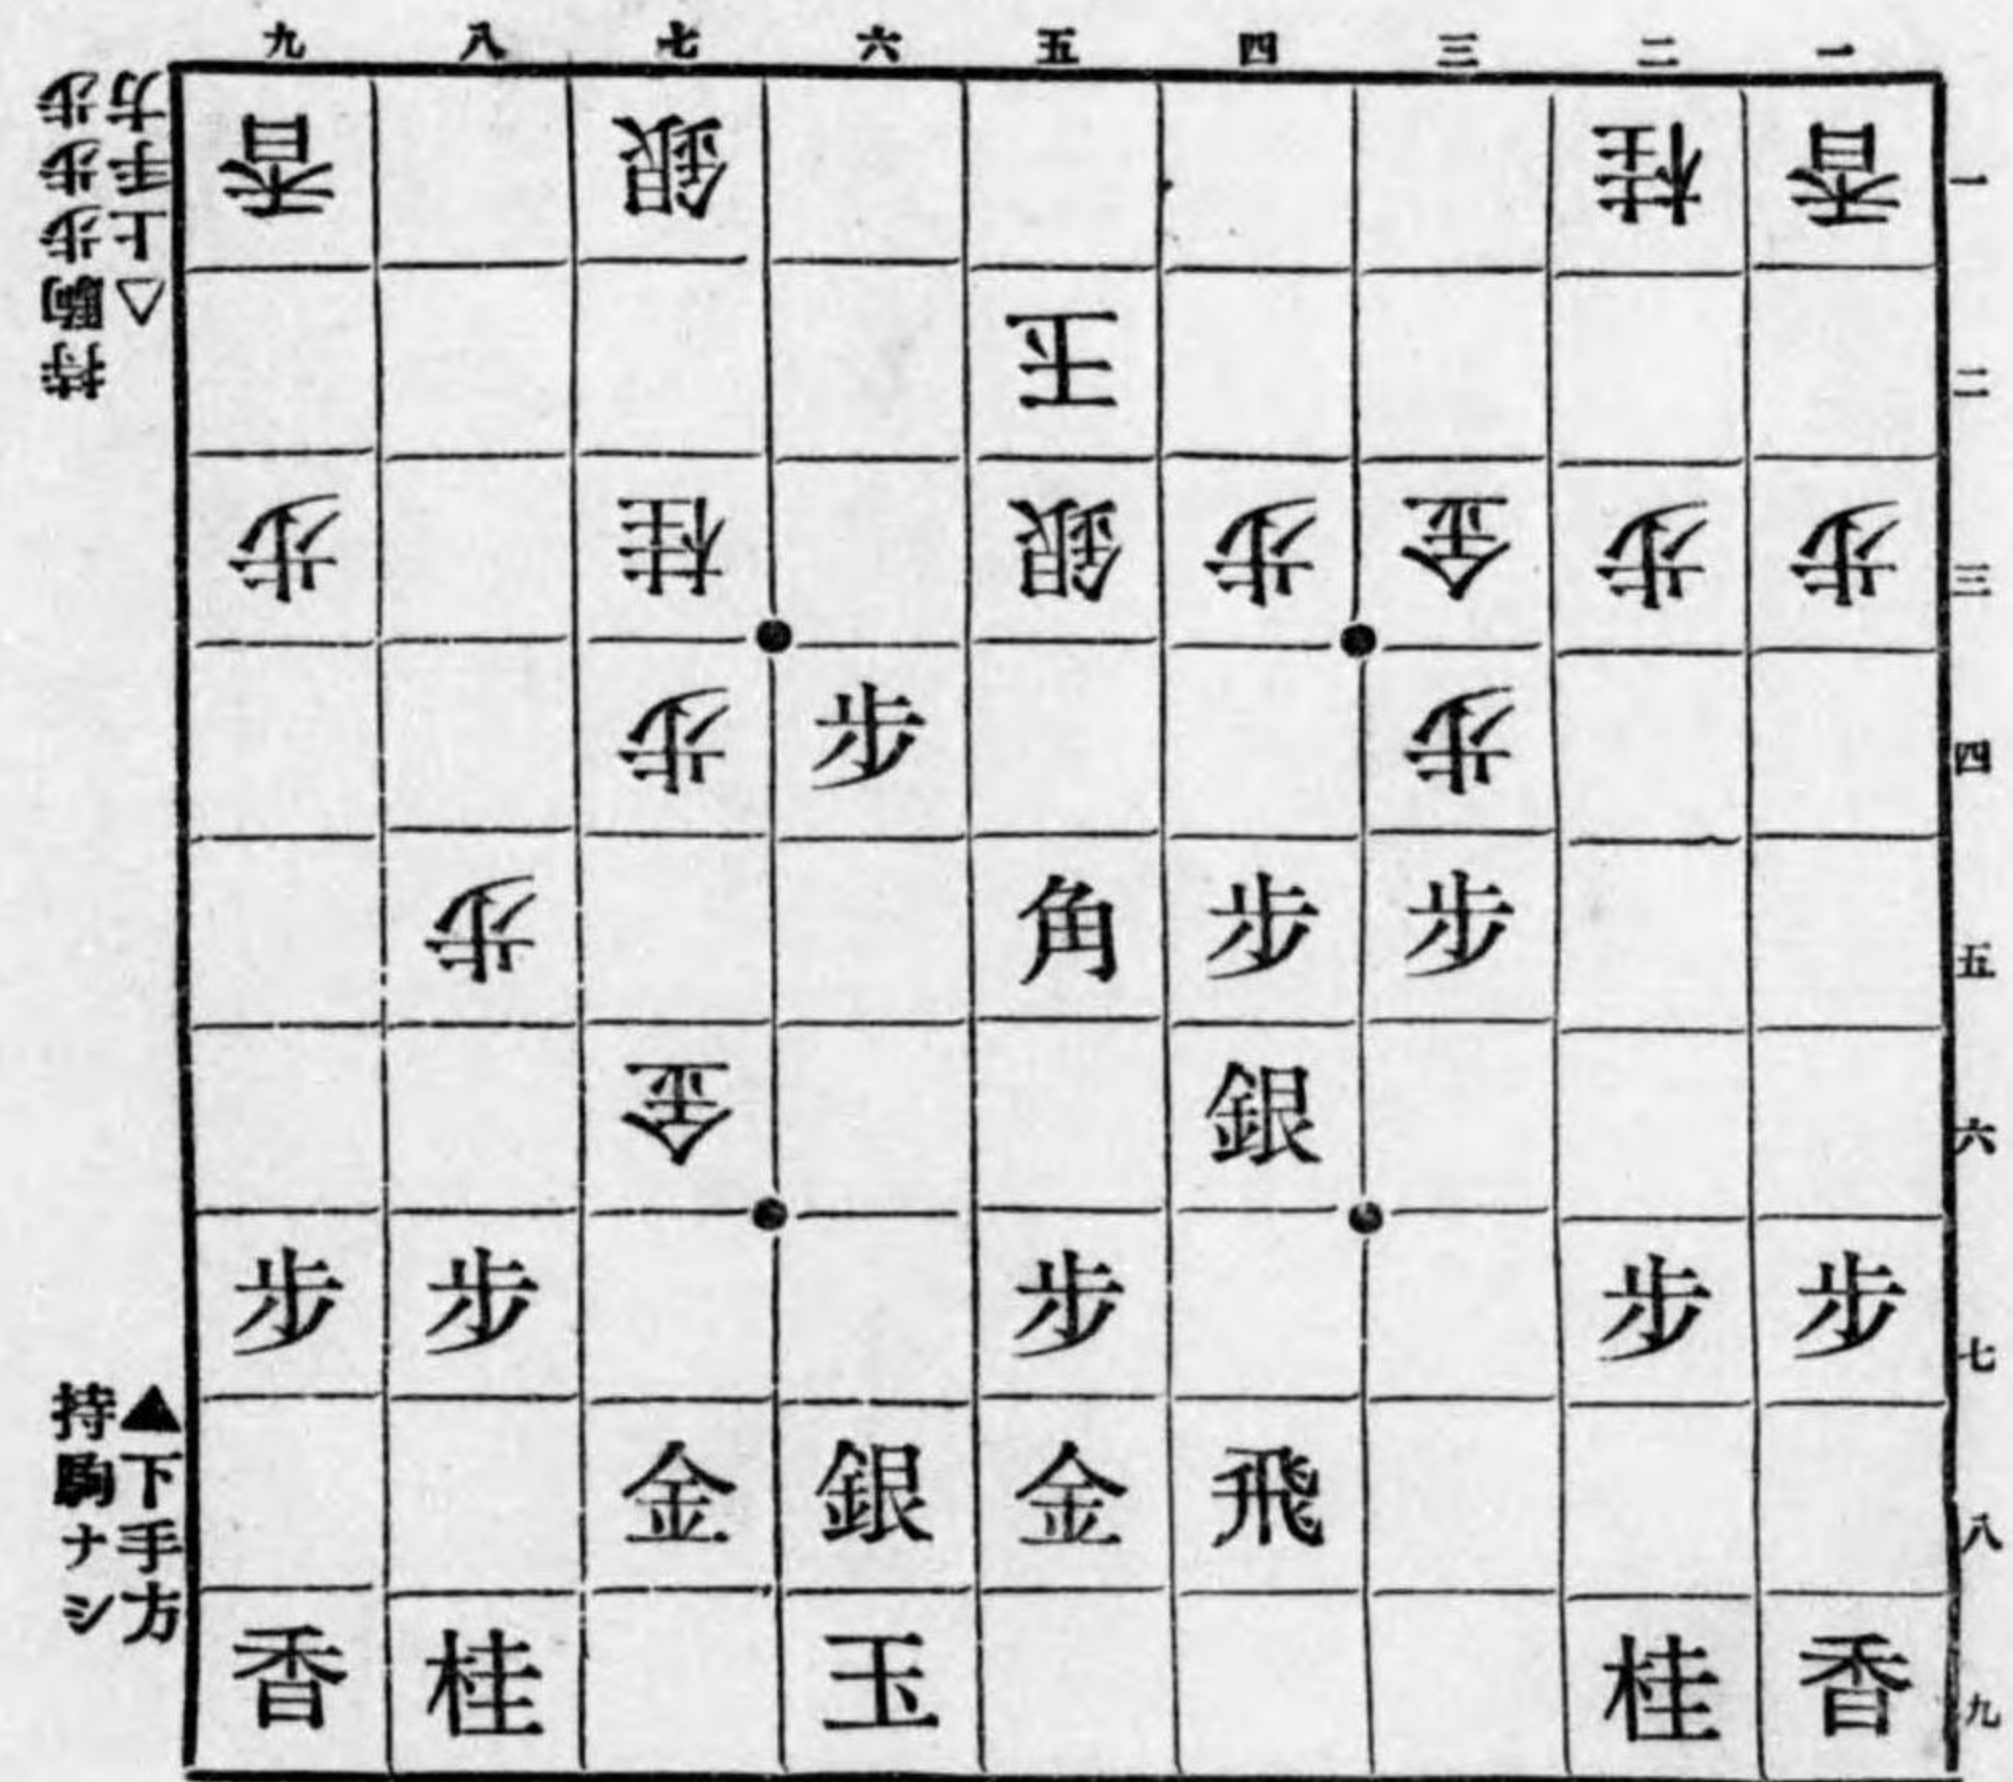 九 八 七 六 五 四 三 二 一
香 銀 桂 香 一
王 二
歩 桂 銀 歩 金 歩 歩 三
歩 歩 歩 四
歩 角 歩 歩 五
金 銀 六
歩 歩 歩 歩 歩 七
金 銀 金 飛 八
香 桂 玉 桂 香 九
△上手方
持駒 歩歩歩
▲下手方
持駒ナシ